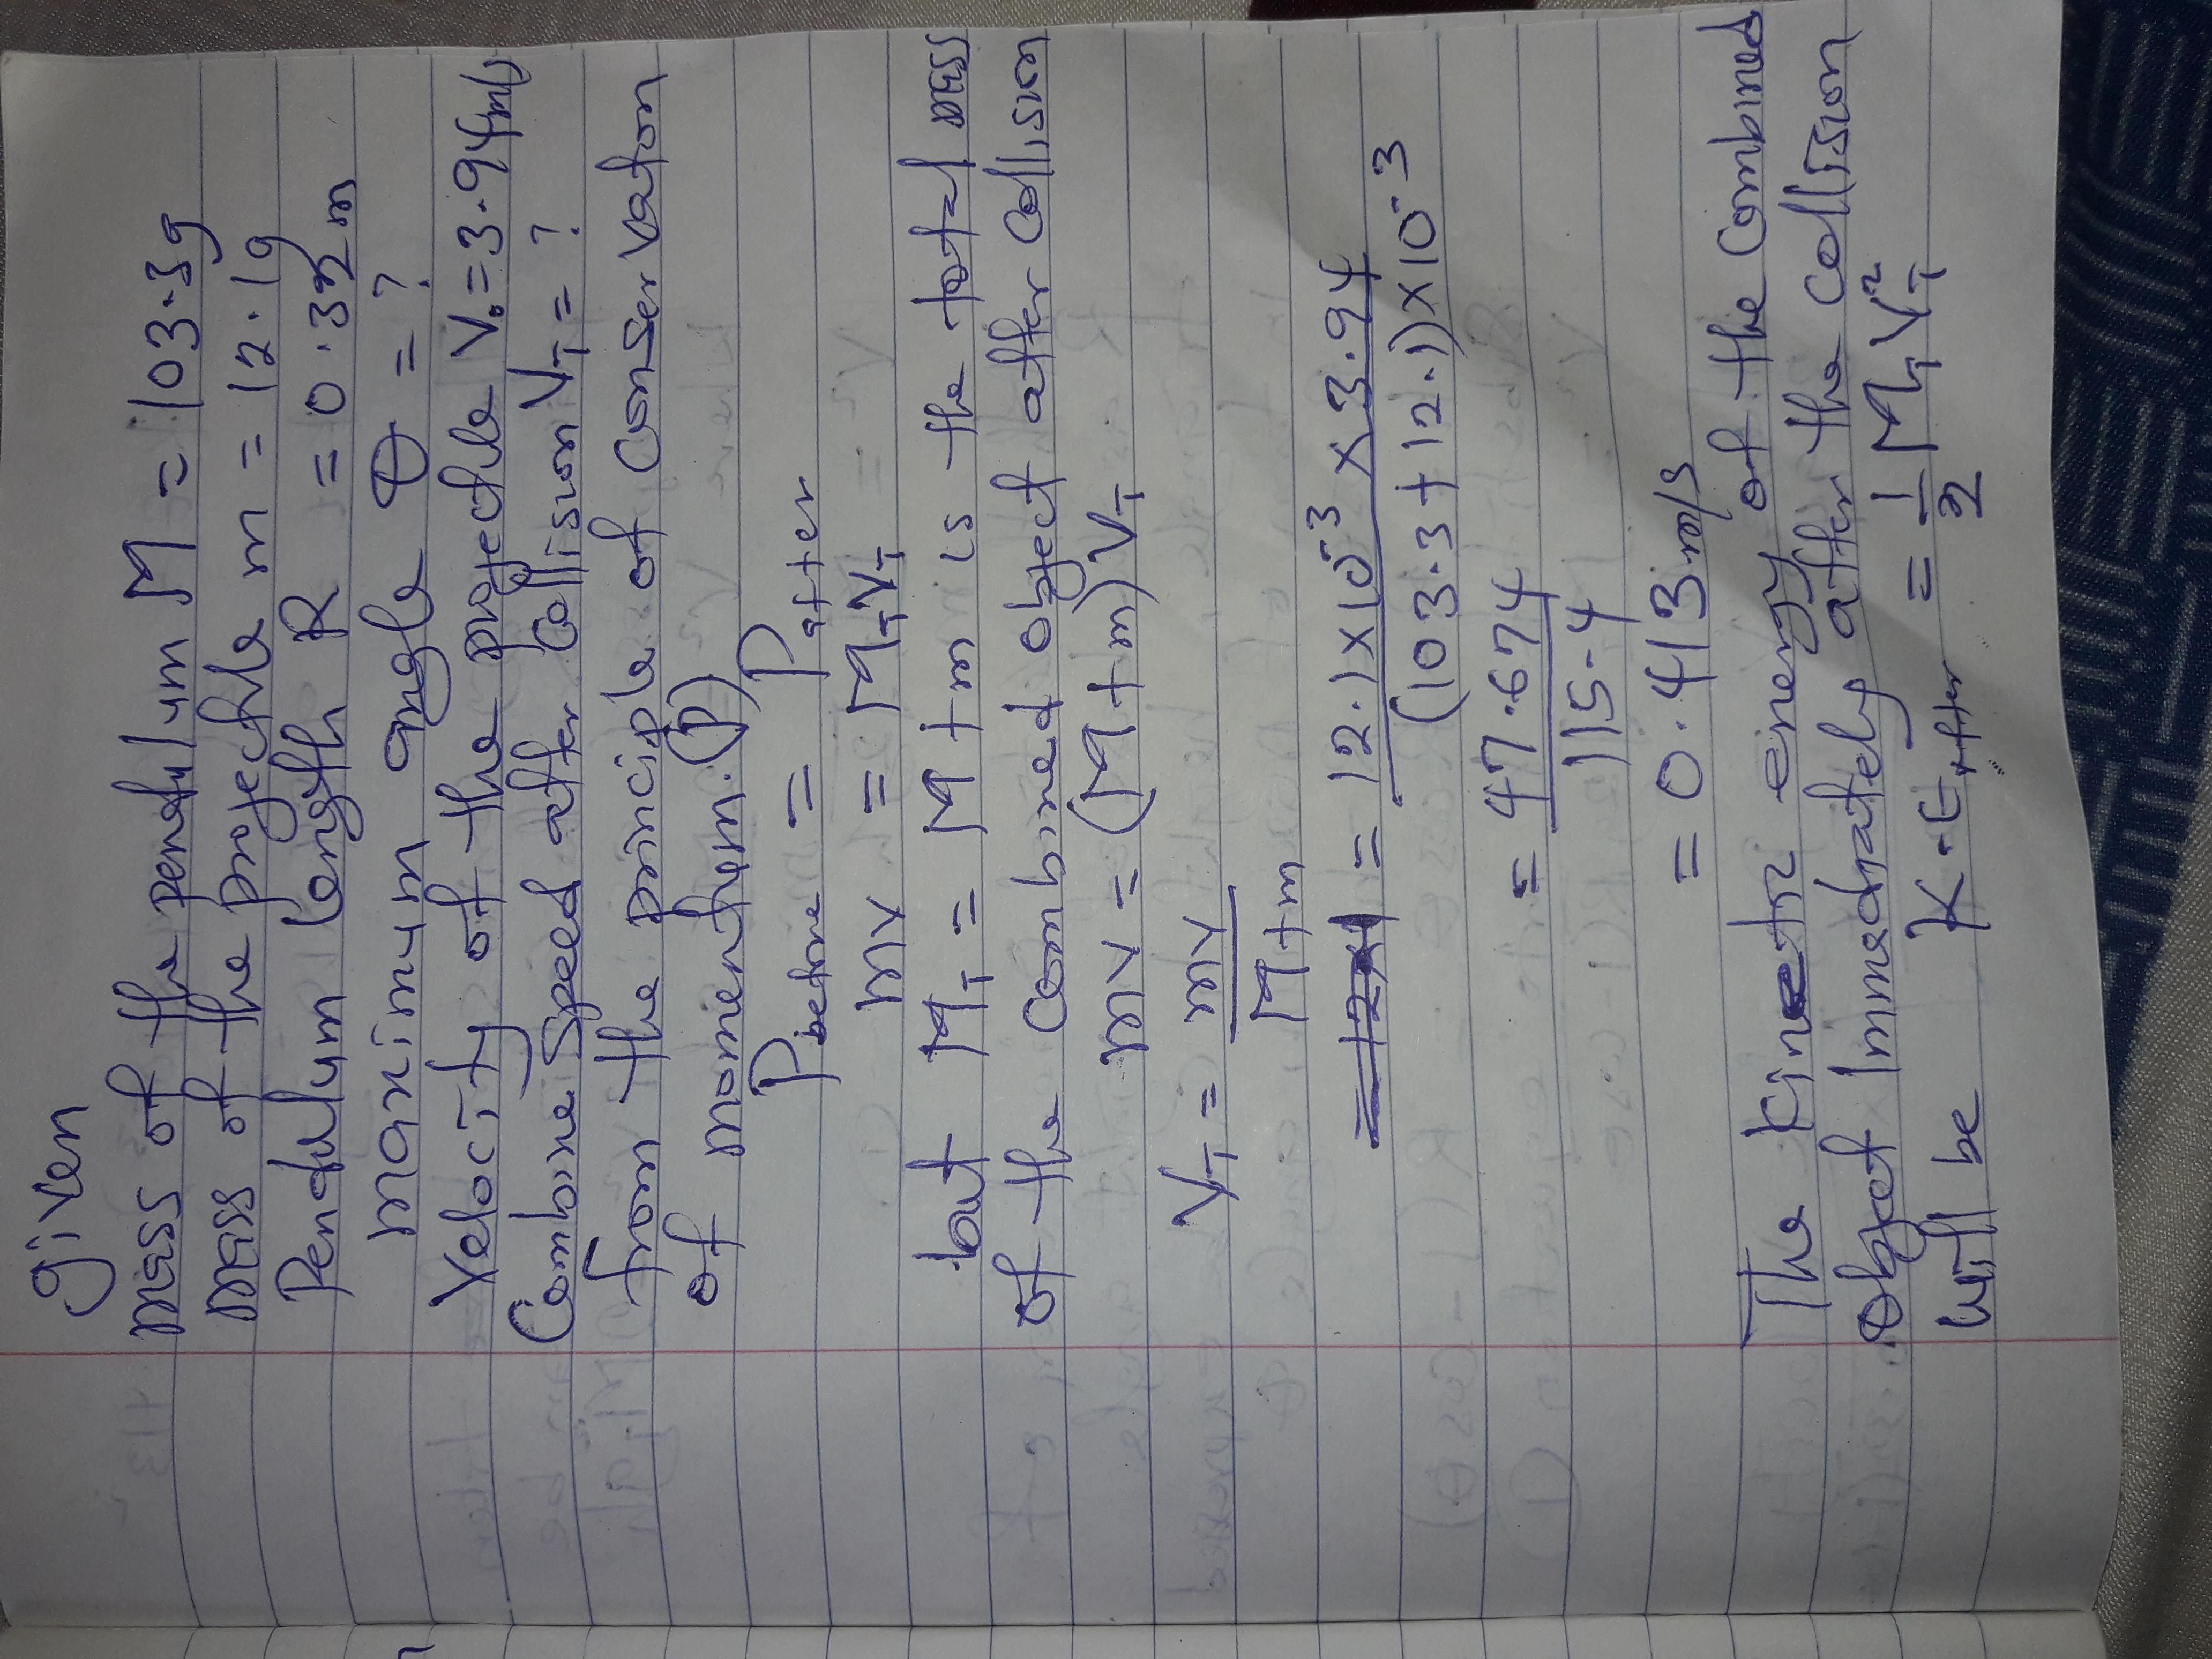 given
mass of the pendulum M = 103.3g
mass of the projectile m = 12.1g
Pendulum length R = 0.32m
maximum angle θ = ?
Velocity of the projectile V₀ = 3.94m/s
Combine speed after collision V_T = ?
from the principle of conservation
of momentum (P)
P_before = P_after
mv = M_T V_T
but M_T = M + m is the total mass
of the combined object after collision
mv = (M + m) V_T
V_T = mv / M + m
= 12.1 × 10⁻³ × 3.94 / (103.3 + 12.1) × 10⁻³
= 47.674 / 115.4
= 0.413 m/s
The kinetic energy of the combined
object immediately after the collision
will be K.E_after = 1/2 M_T V_T²